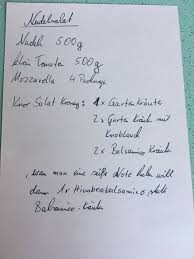 Nudelsalat
Nudeln 500g
klein Tomaten 500g
Mozzarella 4 Packung
Knor Salat Krönung: 1x Gartenkräuter
2x Garten Kräuter mit
Knoblauch
2x Balsamico Kräuter
, wenn man eine süße Note haben will
dann 1x Himbeerbalsamico statt
Balsamico-Kräuter